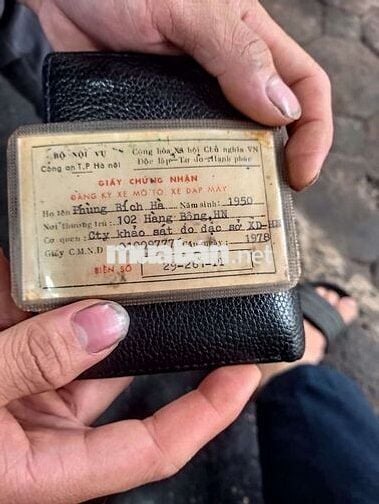 BỘ NỘI VỤ
Công an T.P Hà nội
Cộng hòa Xã hội Chủ nghĩa VN
Độc lập Tự do Hạnh phúc
GIẤY CHỨNG NHẬN
ĐĂNG KÝ XE MÔ TÔ, XE ĐẠP MÁY
Họ tên Phùng Bích Hà Năm sinh: 1950
Nơi thường trú: 102 Hàng Bông, HN
Cơ quan: Cty khảo sát đo đạc sở XD-HN
Giấy C.M.N.D Cấp ngày: 1978
BIỂN SỐ 29-264-11
muaban.net